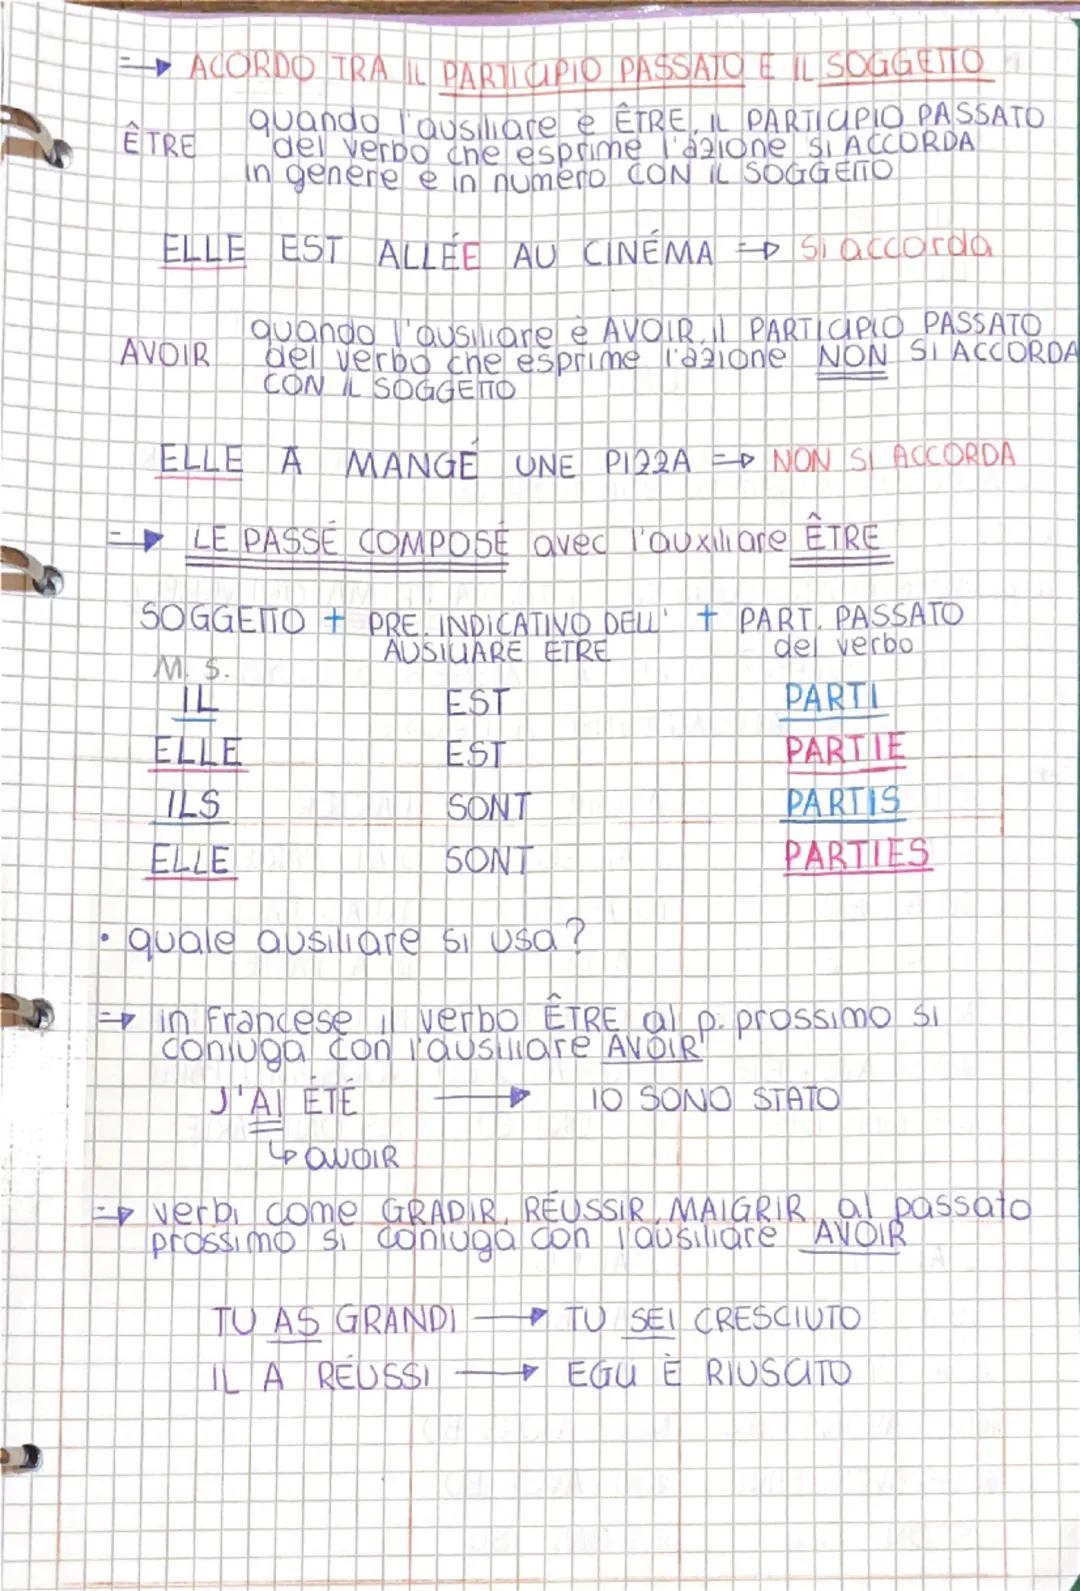 ⇒ ACORDO TRA IL PARTICIPIO PASSATO E IL SOGGETTO
ÊTRE quando l'ausiliare è ÊTRE, IL PARTICIPIO PASSATO
del verbo che esprime l'azione SI ACCORDA
in genere e in numero CON IL SOGGETTO
ELLE EST ALLÉE AU CINÉMA ⇒ Si accorda
quando l'ausiliare è AVOIR, il PARTICIPIO PASSATO
AVOIR del verbo che esprime l'azione NON SI ACCORDA
CON IL SOGGETTO
ELLE A MANGÉ UNE PIZZA ⇒ NON SI ACCORDA
⇒ LE PASSÉ COMPOSÉ avec l'auxiliare ÊTRE
SOGGETTO + PRE. INDICATIVO DELL' + PART. PASSATO
AUSILIARE ETRE del verbo
M. S.
IL EST PARTI
ELLE EST PARTIE
ILS SONT PARTIS
ELLE SONT PARTIES
• quale ausiliare si usa?
⇒ in Francese il verbo ÊTRE al p. prossimo si
coniuga con l'ausiliare AVOIR
J'AI ÉTÉ → IO SONO STATO
↳ AVOIR
⇒ verbi come GRADIR, RÉUSSIR, MAIGRIR al passato
prossimo si coniuga con l'ausiliare AVOIR
TU AS GRANDI → TU SEI CRESCIUTO
IL A RÉUSSI → EGLI È RIUSCITO